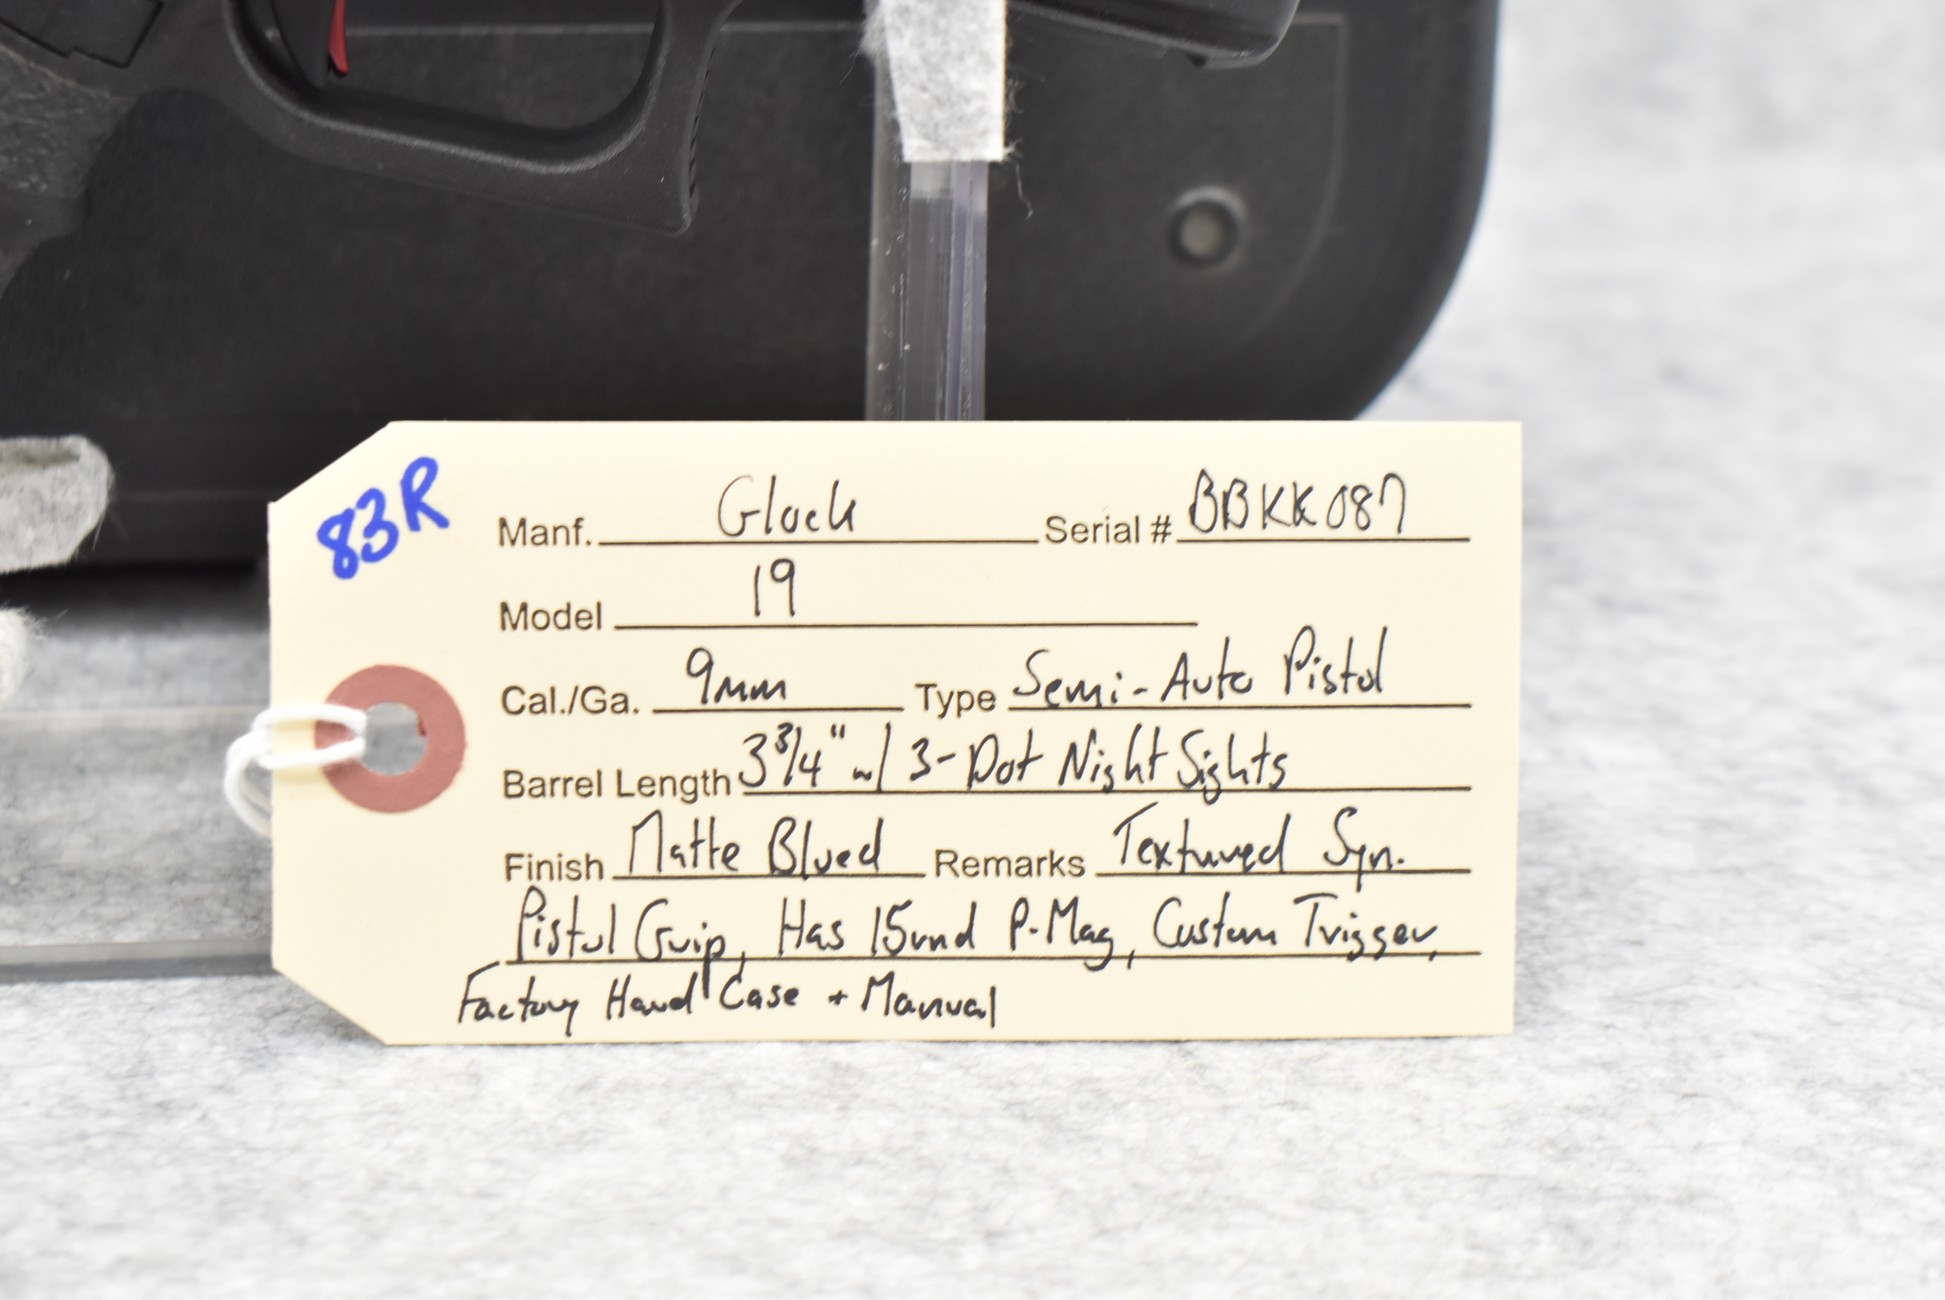 83R
Manf. Glock Serial # BBKK087
Model 19
Cal./Ga. 9mm Type Semi-Auto Pistol
Barrel Length 3 3/4" w/ 3-Dot Night Sights
Finish Matte Blued Remarks Textured Syn.
Pistol Grip, Has 15rnd P-Mag, Custom Trigger,
Factory Hard Case + Manual